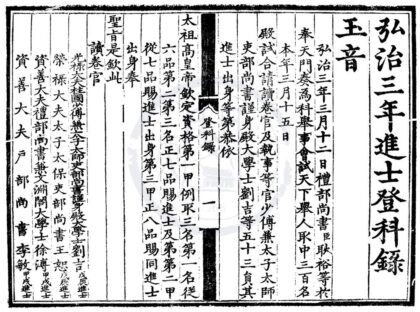 弘治三年進士登科錄
玉音
弘治三年三月十二日禮部尚書臣耿裕等於
奉天門奏為科舉事會試天下舉人取中三百名
本年三月十五日
殿試合請讀卷官及執事等官少傅兼太子太師
吏部尚書謹身殿大學士劉吉等五十三員其
進士出身等第恭依
太祖高皇帝欽定資格第一甲例取三名第一名從
六品第二第三名正七品賜進士及第第二甲
從七品賜進士出身第三甲正八品賜同進士
出身奉
聖旨是欽此
讀卷官
光祿大夫柱國少傅兼太子太師吏部尚書謹身殿大學士劉吉戊辰進士
榮祿大夫太子太保吏部尚書王恕戊辰進士
資善大夫禮部尚書兼文淵閣大學士徐溥甲戌進士
資善大夫戶部尚書李敏甲戌進士
登科錄
一